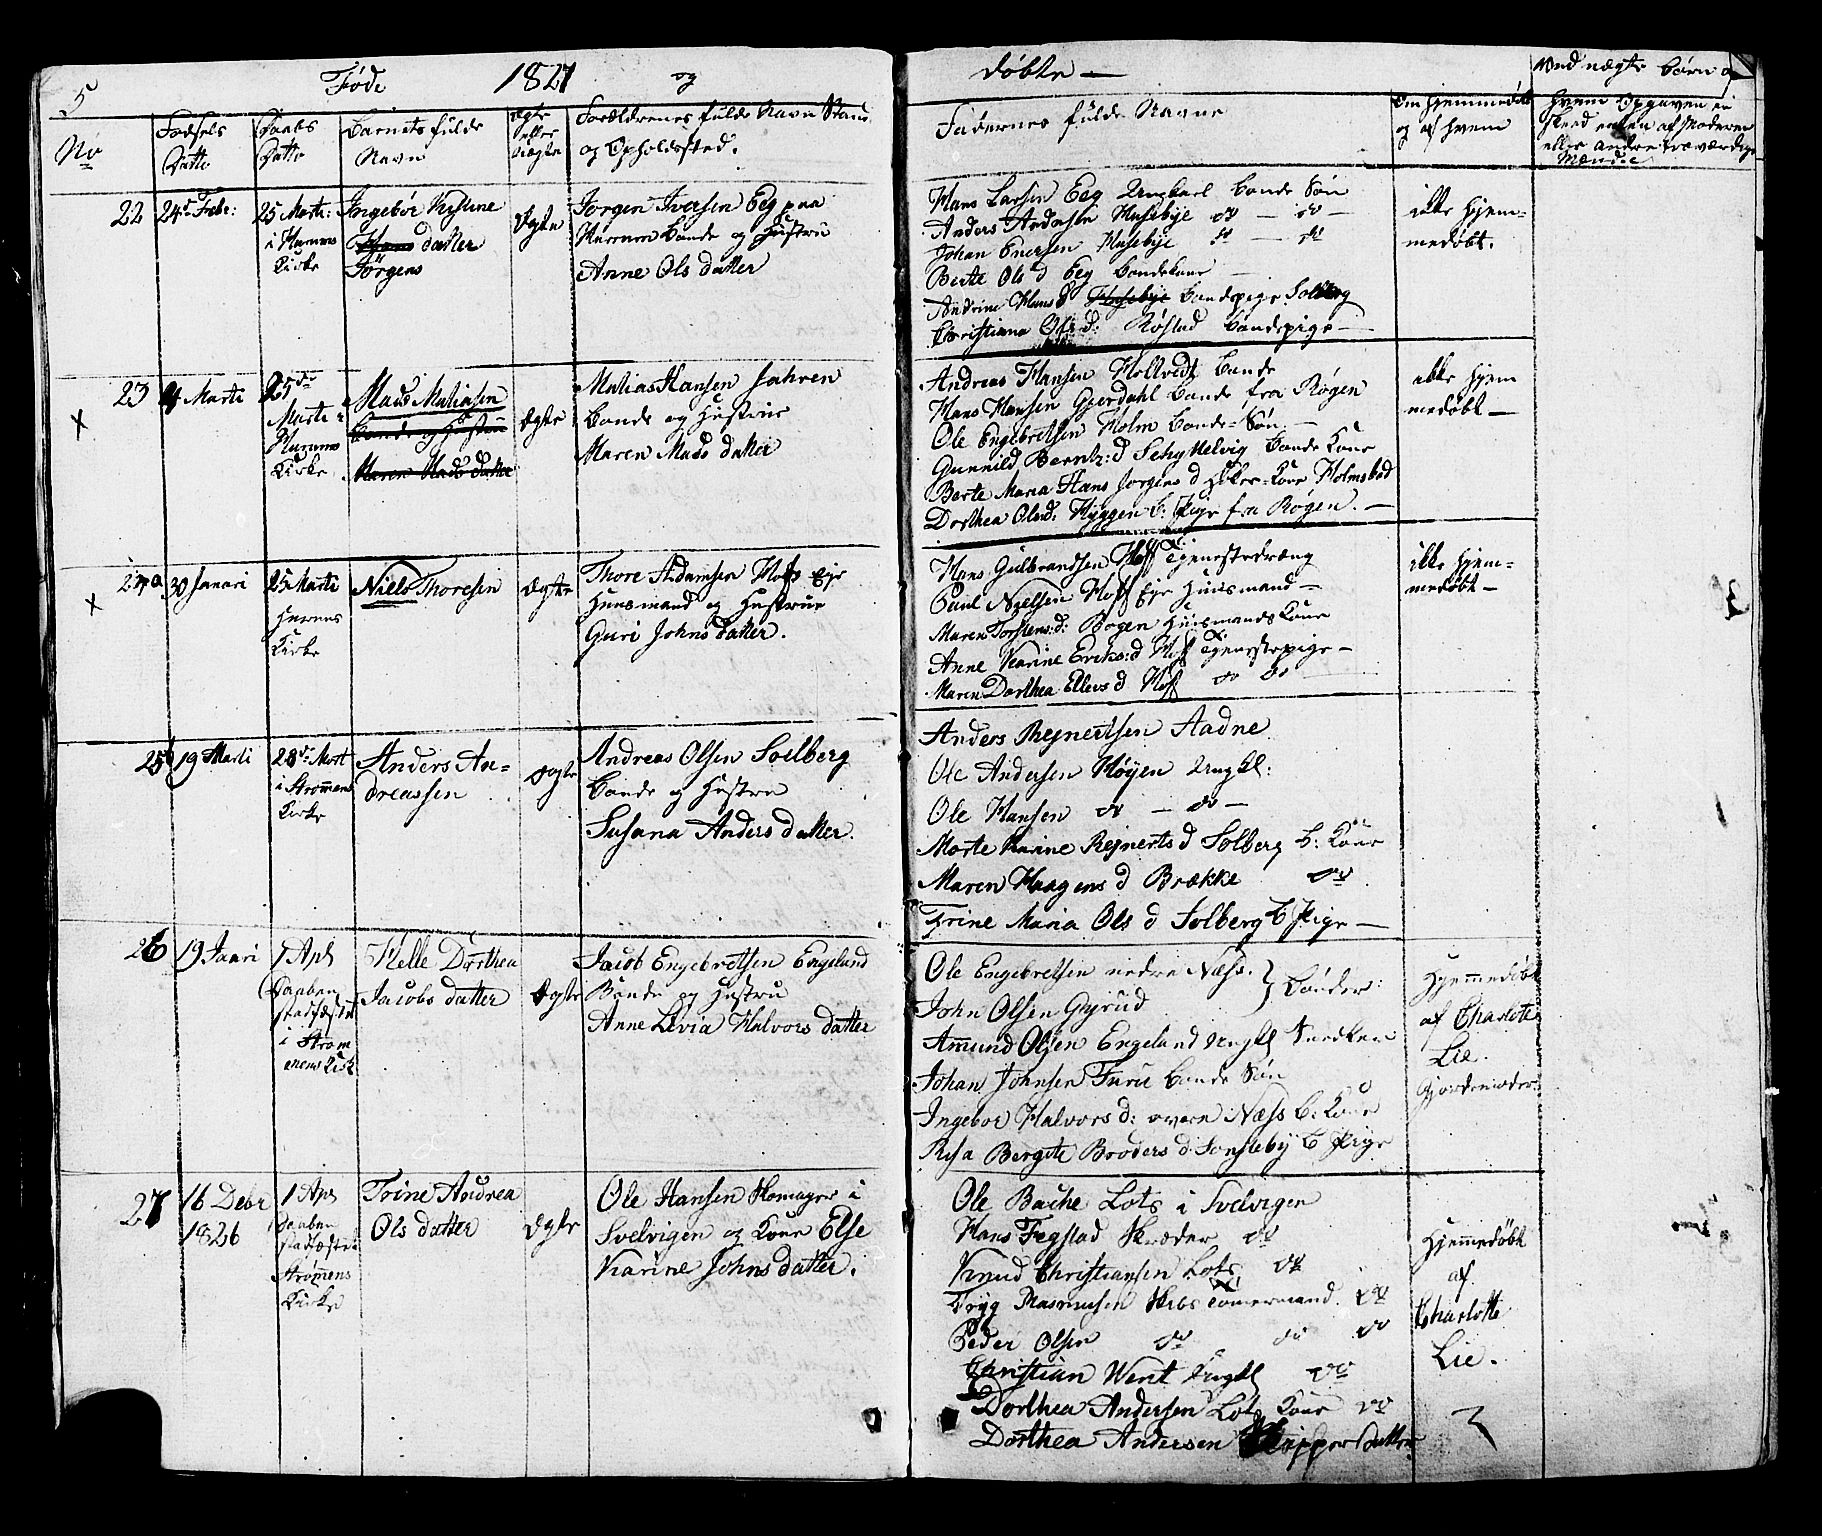 5 Føde 1827 og døbte —
No
Fødsels Datto
Daabs Datto
Barnets fulde Navn
Ægte eller Uægte
Forældrenes fulde Navn Stand og Opholdssted.
Fadernes fulde Navne
Om hjemmedøbt og af hvem
Ved uægte børn og hvem Opgaven er skeed enten af Moderen eller andre troværdige Mænd
22
24de Febr:
25 Marti:
i Hurums
Kirke
Ingebør Kirstine
datter
Jörgens
Ægte
Jorgen Iversen Eeg paa
Hurum bonde og Hustru
Anne Ols datter
Hans Larsen Eeg Ungkarl bonde Søn
Anders Andersen Husebye do — do —
Johan Enersen Husebye do — do
Berte Ols d Eeg bondekone —
Andrine Hans d Husebye bondepige Solberg
Christiane Ols d: Røstad bondepige —
ikke hjem-
medøbt.
23
x
4 Marti
25de
Marti i
Hurums
Kirke
Mads Matiasen
bonde og Hustru
Maren Mads datter
Ægte
Matias Hansen Jahren
bonde og Hustrue
Maren Mads datter
Andreas Hansen Holtvedt bonde
Hans Hansen Gjerdahl bonde fra Røgen
Ole Engebretsen Holm bonde Søn —
Gunnild Berntz:d Schyttelvig bonde Kone
Berte Maria Hans Jorgens d Høker-Kone Holmsbod
Dorthea Olsd: Hyggen b: Pige fra Røgen. —
ikke hjem
medøbt —
24 a
x
30 Janari
25 Marti
Hurums
Kirke
Niels Thoresen
Ægte
Thore Adamsen Hoff Eje
Huusmand og Hustrue
Guri Johns datter.
Hans Gulbrandsen Hoff Tjenestedræng
Paul Nielsen Hoff Eje Huusmand —
Maren Torstens:d: Bogen Huusmands Kone
Anne Karine Ericks:d Hoff Tjenestepige —
Maren Dorthea Ellevs d Hoff do do
ikke hjem-
medøbt —
25
19 Marti
28de Mart
i Strømens
Kirke
Anders An-
dreassen
Ægte
Andreas Olsen Solberg
bonde og Hustru
Susana Anders datter.
Anders Rejnertsen Aadne
Ole Andersen Høyen Ungkl:
Ole Hansen do — do —
Marte Karine Rejnerts d Solberg b: Kone
Maren Haagens d Brække do
Trine Maria Ols d Solberg b Pige —
26
19 Jaari
1 Apl
Daaben
stadfæstet
i Strøm
enens Kirk
Helle Dorthea
Jacobs datter
Ægte
Jacob Engebretsen Engeland
Bonde og Hustru
Anne Livia Halvors datter
Ole Engebretsen nedre Næss. } bønder:
John Olsen Gryrud
Amund Olsen Engeland Ungkl Snedker
Johan Johnsen Furu bonde Søn
Ingebor Halvors d: overn Næss b: Kone
Risa Bergite Broders d. Tonsleby b Pige
Hjemmedøbt
af Charlote
Lie.
Gjordemoder
27
16 Debr
1826
1 Apl
Daaben
stadfæstet
Strømens
Kirke
Trine Andrea
Ols datter
Ægte
Ole Hansen Homager i
Svelvigen og Kone Else
Karine Johns datter.
Ole Bache Lots i Svelvigen
Hans Fegstad Skræder do
Knud Christiansen Lots do
Tryg Rasmusen Skibs Tømermand do
Peder Olsen do do do
Christian Went Ungkl do
Dorthea Andersen Lots Kone do
Dorthea Andersen Skipper datter
Hjemmedøbt
af
Charlotte
Lie.